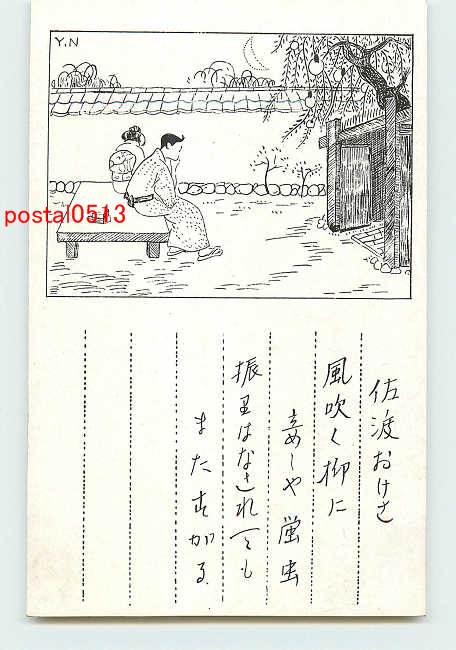 Y.N
postal0513
佐渡おけさ
風吹く柳に
妾しや蛍虫
振りはなされても
またすがる